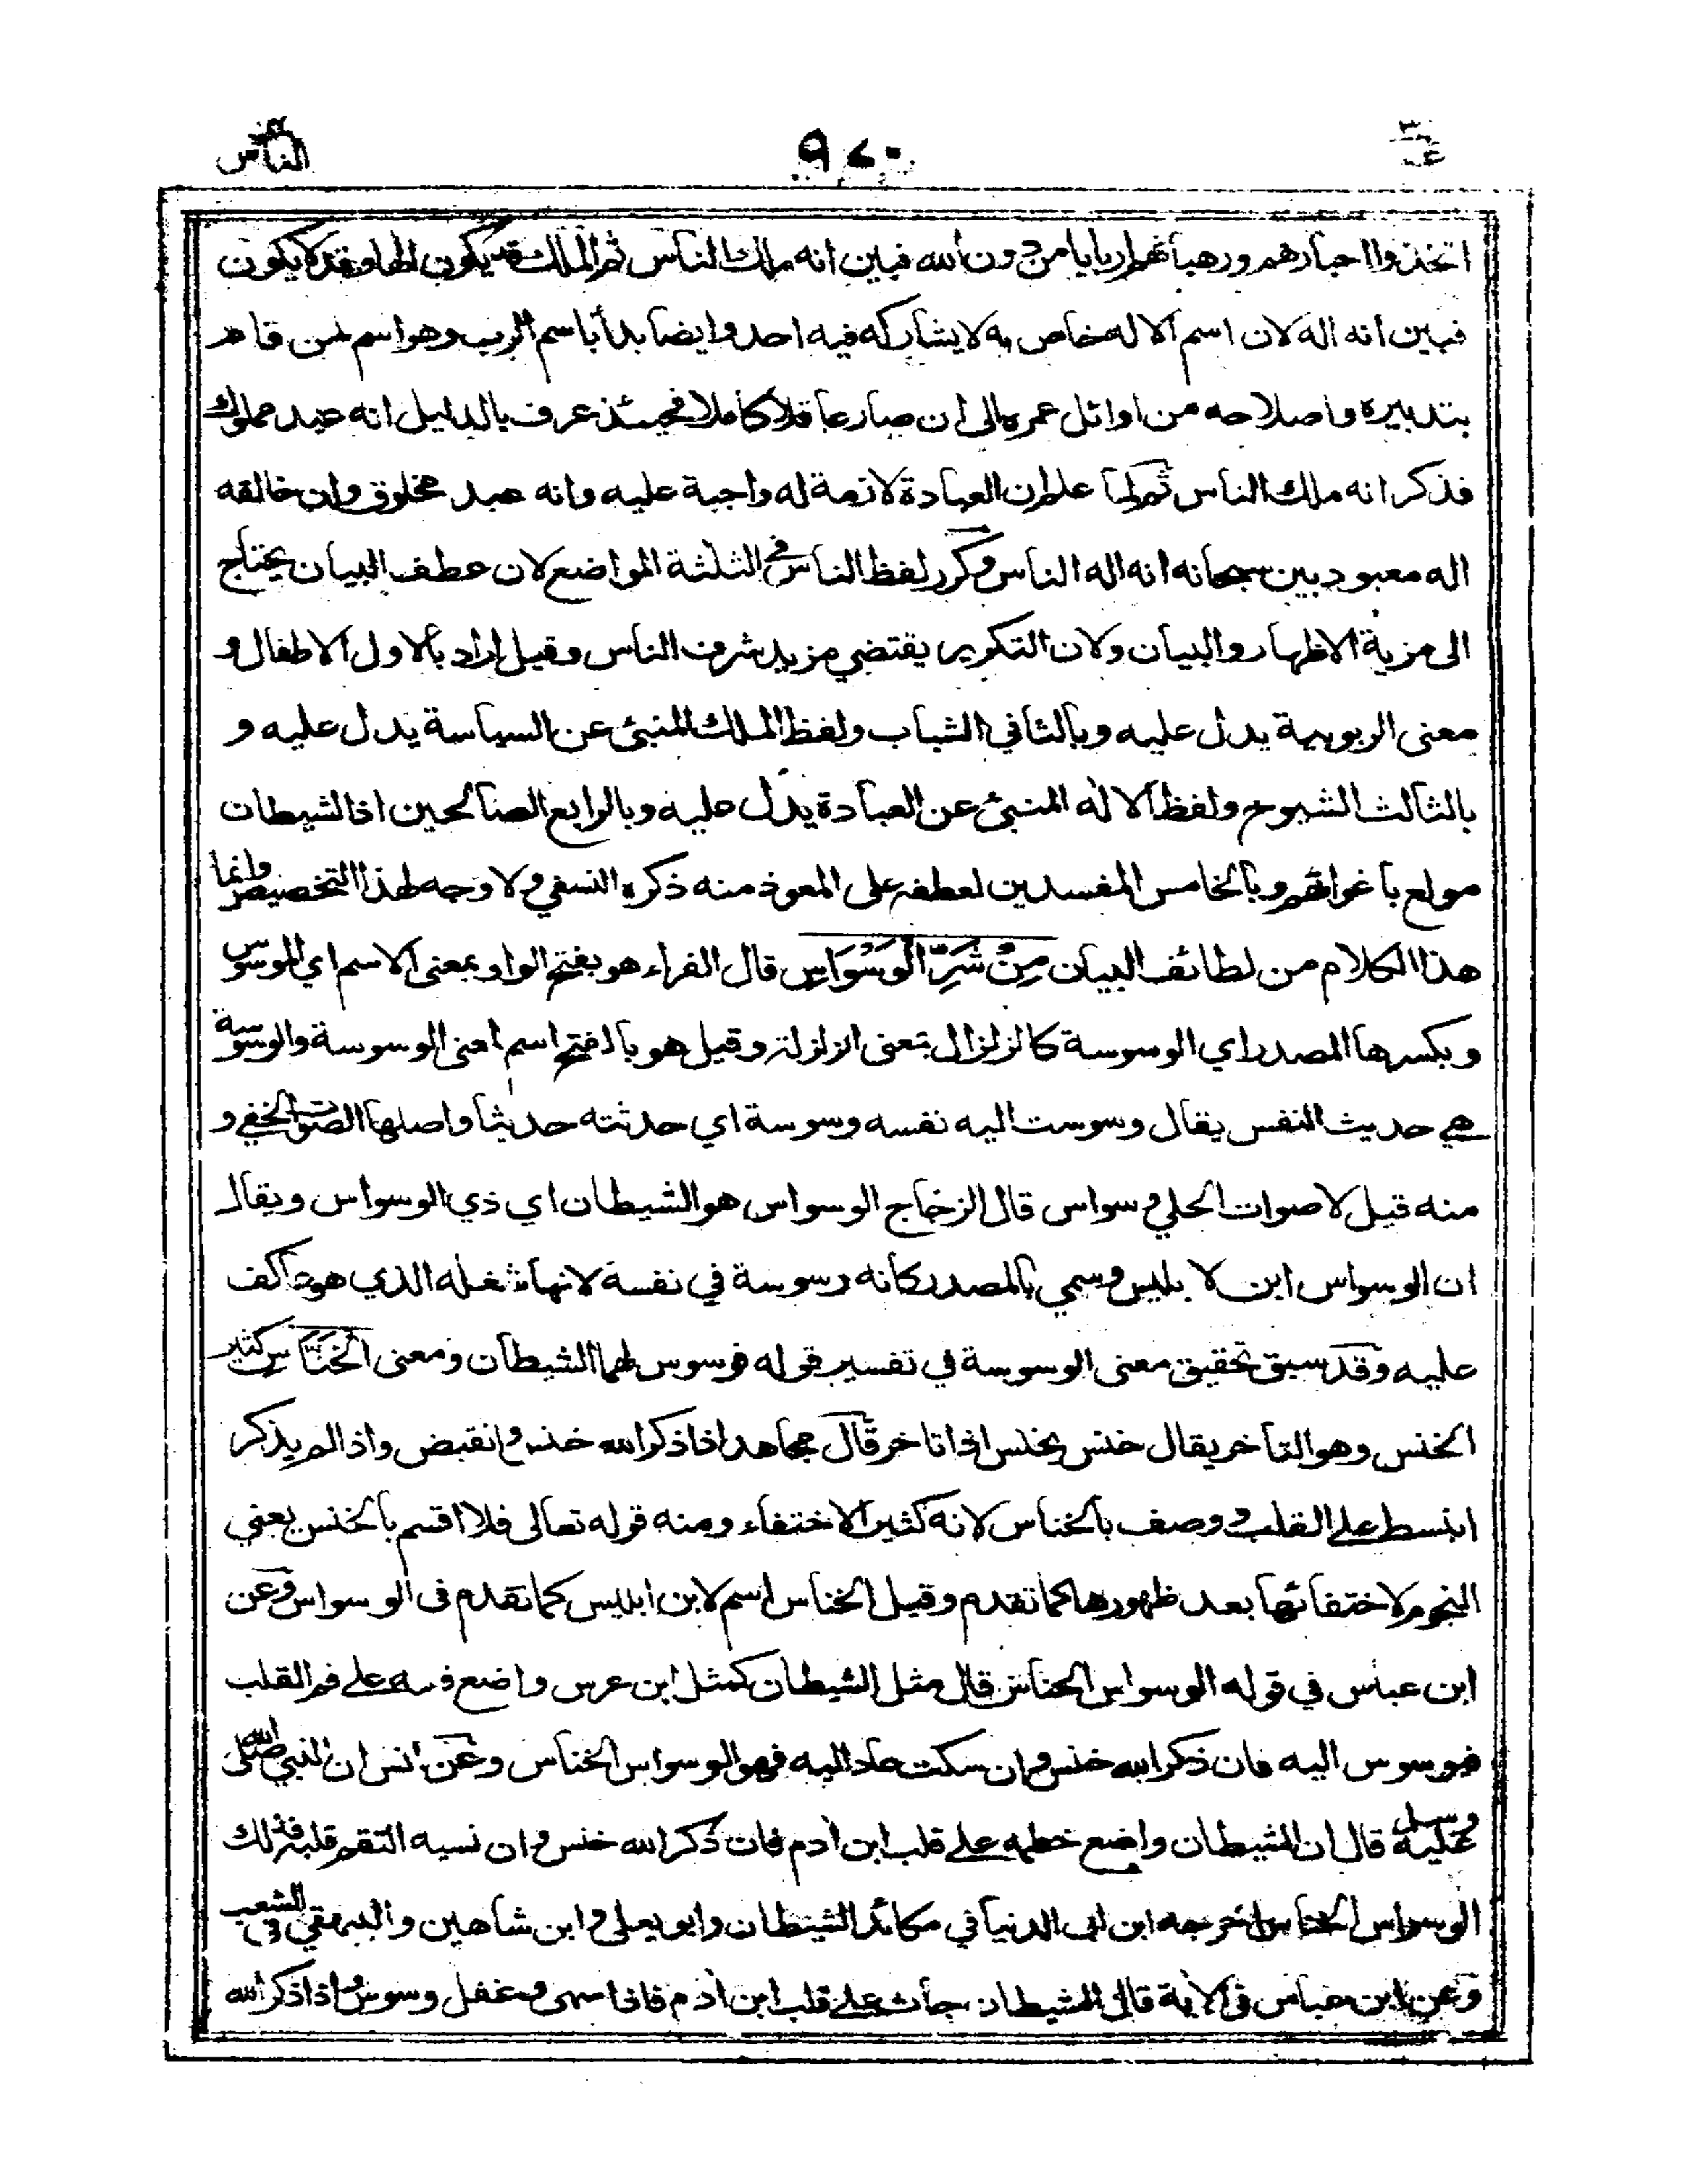 عم ٣٠
٩٧٠
الناس
اتخذوا احبارهم ورهبانهم اربابا من دون الله فبين انه ملك الناس ثم الملك قد يكون الها وقد لا يكون
فبين انه اله لان اسم الاله خاص به لا يشاركه فيه احد وايضا بدأ باسم الرب وهو اسم لمن قام
بتدبيره واصلاحه من اوائل عمره الى ان صار عاقلا كاملا فحينئذ عرف بالدليل انه عبد مملوك
فذكر انه ملك الناس ثم لما علم ان العبادة لازمة له واجبة عليه وانه عبد مخلوق وان خالقه
اله معبود بين سبحانه انه اله الناس وكرر لفظ الناس في الثلثة المواضع لان عطف البيان يحتاج
الى مزية الاظهار والبيان ولان التكرير يقتضي مزيد شرف الناس وقيل اراد بالاول الاطفال و
معنى الربوبية يدل عليه وبالثاني الشباب ولفظ الملك المنبئ عن السياسة يدل عليه و
بالثالث الشيوخ ولفظ الاله المنبئ عن العبادة يدل عليه وبالرابع الصالحين اذ الشيطان
مولع باغوائهم وبالخامس المفسدين لعطفه على المعوذ منه ذكره النسفي ولا وجه لهذا التخصيص وانما
هذا الكلام من لطائف البيان مِنْ شَرِّ الْوَسْوَاسِ قال الفراء هو بفتح الواو بمعنى الاسم اي الموسوس
وبكسرها المصدر اي الوسوسة كالزلزال بمعنى الزلزلة وقيل هو بالفتح اسم لمعنى الوسوسة والوسوسة
هي حديث النفس يقال وسوست اليه نفسه وسوسة اي حدثته حديثا واصلها الصوت الخفي و
منه قيل لاصوات الحلي وسواس قال الزجاج الوسواس هو الشيطان اي ذي الوسواس ويقال
ان الوسواس ابن لابليس وسمي بالمصدر كانه وسوسة في نفسة لانها شغله الذي هو عاكف
عليه وقد سبق تحقيق معنى الوسوسة في تفسير قوله فوسوس لهما الشيطان ومعنى الْخَنَّاسِ كثير
الخنس وهو التاخر يقال خنس يخنس اذا تاخر قال مجاهد اذا ذكر الله خنس وانقبض واذا لم يذكر
انبسط على القلب ووصف بالخناس لانه كثير الاختفاء ومنه قوله تعالى فلا اقسم بالخنس يعني
النجوم لاختفائها بعد ظهورها كما تقدم وقيل الخناس اسم لابن ابليس كما تقدم في الوسواس وعن
ابن عباس في قوله الوسواس الخناس قال مثل الشيطان كمثل ابن عرس واضع فمه على فم القلب
فيوسوس اليه فان ذكر الله خنس وان سكت عاد اليه فهو الوسواس الخناس وعن انس ان النبي صلى الله
عليه وسلم قال ان الشيطان واضع خطمه على قلب ابن ادم فان ذكر الله خنس وان نسيه التقم قلبه فذلك
الوسواس الخناس اخرجه ابن ابي الدنيا في مكائد الشيطان وابو يعلى وابن شاهين والبيهقي في الشعب
وعن ابن عباس في الاية قال الشيطان جاث على قلب ابن ادم فاذا سهى وغفل وسوس واذا ذكر الله